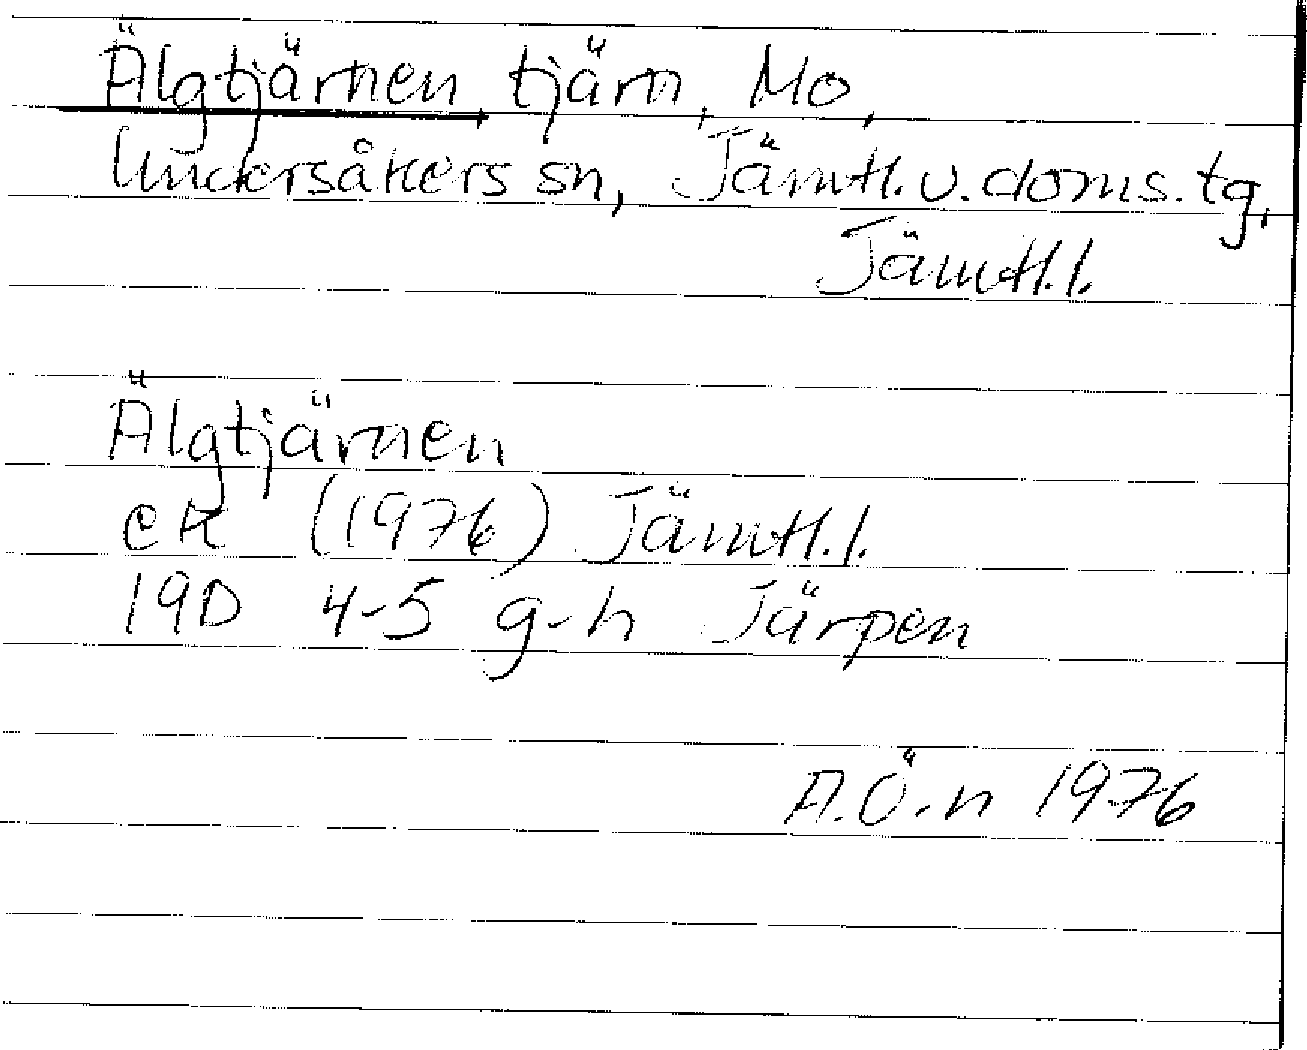 Älgtjärnen, tjärn, Mo,
Undersåkers sn, Jämtl.v.doms.tg,
Jämtl.l.
Älgtjärnen
ek (1976) Jämtl.l.
19D 4-5 g-h Järpen
A.Ö-n 1976